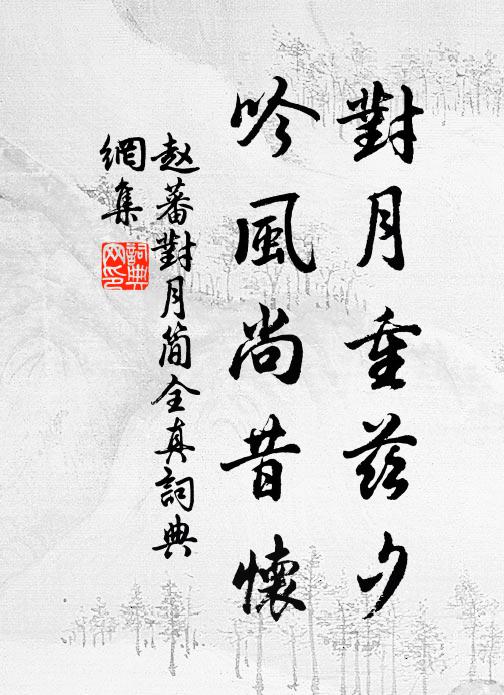 對月重茲夕
吟風尚昔懷
赵蕃對月簡全真詞典
網集
詞典
网印